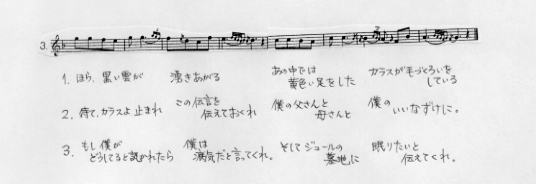 3.
1. ほら、黒い雲が 湧きあがる あの中では 黄色い足をした カラスが毛づくろいを している
2. 待て、カラスよ 止まれ この伝言を 伝えておくれ 僕の父さんと 母さんと 僕の いいなずけに。
3. もし僕が どうしてると訊かれたら 僕は 病気だと言ってくれ。 そしてジュールの 墓地に 眠りたいと 伝えてくれ。